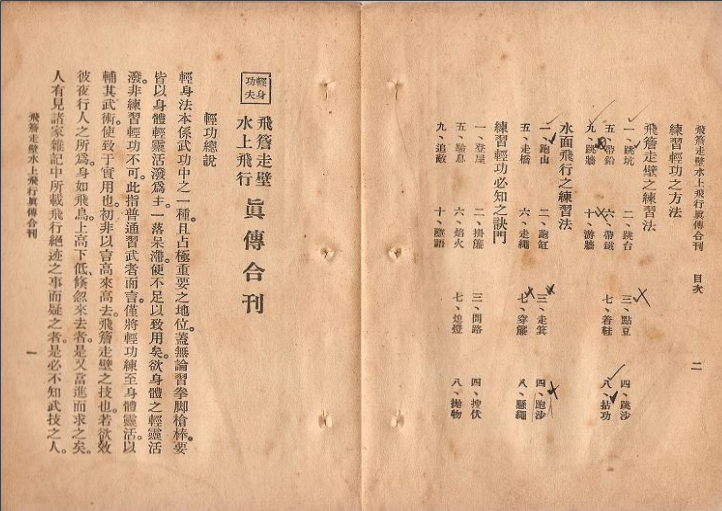 飛簷走壁水上飛行眞傳合刊 目次 二
練習輕功之方法
飛簷走壁之練習法
一、跳坑 二、跳台 三、點豆 四、跳沙
五、帶鉛 六、帶鐵 七、着鞋 八、拈功
九、跳牆 十、游牆
水面飛行之練習法
一、跑山 二、跑缸 三、走箕 四、跑沙
五、走橋 六、走繩 七、穿簾 八、懸繩
練習輕功必知之訣門
一、登屋 二、掛簷 三、問路 四、搜伏
五、驗息 六、熖火 七、熄燈 八、拋物
九、追敵 十、語
輕身功夫
飛簷走壁
水上飛行
眞傳合刊
輕功總說
輕身法本係武功中之一種。且占極重要之地位。蓋無論習拳脚槍棒。要
皆以身體輕靈活潑爲主。一落呆滯便不足以致用矣。欲身體之輕靈活
潑。非練習輕功不可。此指普通習武者而言。僅將輕功練至身體靈活。以
輔其武術。使致于實用也。初非以言高來高去。飛簷走壁之技也。若欲效
彼夜行人之所爲。身如飛鳥。上高下低、倏忽來去者。是又當進而求之矣。
人有見諸家雜記中所載飛行絕迹之事而疑之者。是必不知武技之人。
飛簷走壁水上飛行眞傳合刊 一